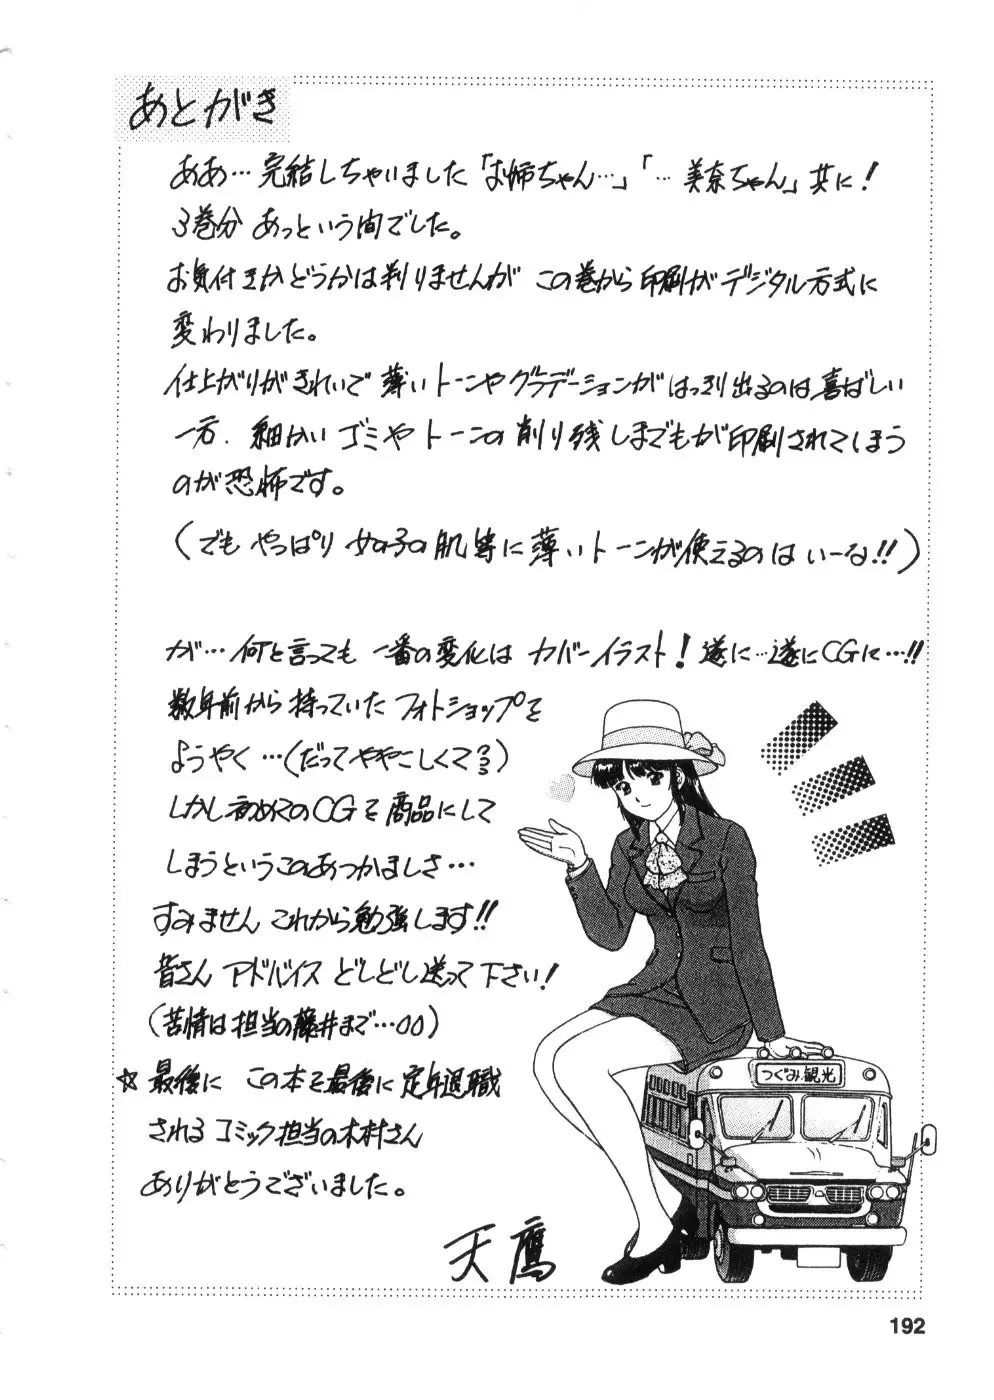 あとがき
ああ…完結しちゃいました「お姉ちゃん…」「…美奈ちゃん」共に!
3巻分 あっという間でした。
お気付きかどうかは判りませんが この巻から印刷がデジタル方式に
変わりました。
仕上がりがきれいで 薄いトーンやグラデーションが はっきり出るのは喜ばしい
一方、細かい ゴミや トーンの削り残しまでもが印刷されてしまう
のが恐怖です。
(でも やっぱり 女の子の肌等に薄いトーンが使えるのは いーな!!)
が…何と言っても 一番の変化は カバーイラスト!遂に…遂にCGに…!!
数年前から持っていた フォトショップを
ようやく…(だってややこしくて??)
しかし初めてのCGを商品にして
しまうというこのあつかましさ…
すみません これから勉強します!!
皆さん アドバイス どしどし送って下さい!
(苦情は担当の藤井まで…00)
☆最後に この本を最後に定年退職
される コミック担当の木村さん
ありがとうございました。
天鷹
つぐみ観光
192